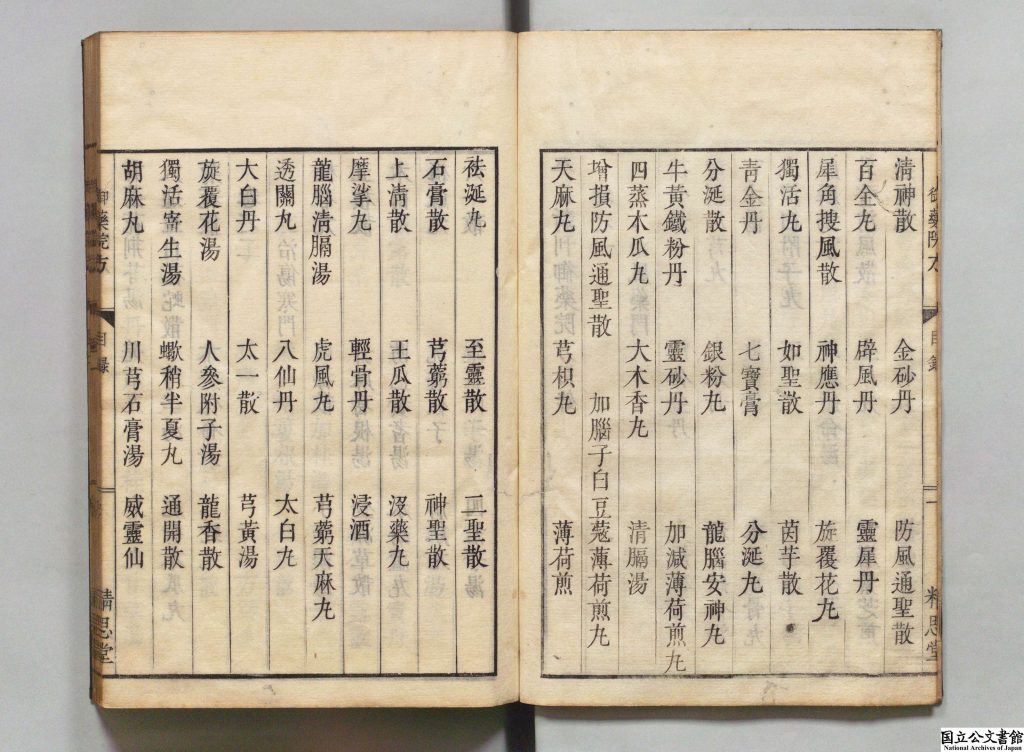 清神散 金砂丹 防風通聖散
百全丸 辟風丹 靈犀丹
犀角搜風散 神應丹 旋覆花丸
獨活丸 如聖散 茵芋散
青金丹 七寶膏 分涎丸
分涎散 銀粉丸 龍腦安神丸
牛黃鐵粉丹 靈砂丹 加減薄荷煎丸
四蒸木瓜丸 大木香丸 清膈湯
增損防風通聖散 加腦子白豆蔻薄荷煎丸
天麻丸 芎枳丸 薄荷煎
祛涎丸 至靈散 二聖散
石膏散 芎藭散 神聖散
上清散 王瓜散 沒藥丸
摩挲丸 輕骨丹 浸酒
龍腦清膈湯 虎風丸 芎藭天麻丸
透關丸 八仙丹 太白丸
大白丹 太一散 芎黃湯
旋覆花湯 人參附子湯 龍香散
獨活寄生湯 蠍稍半夏丸 通開散
胡麻丸 川芎石膏湯 威靈仙
御藥院方 目錄 一 精思堂
御藥院方 目錄 精思堂
国立公文書館
National Archives of Japan